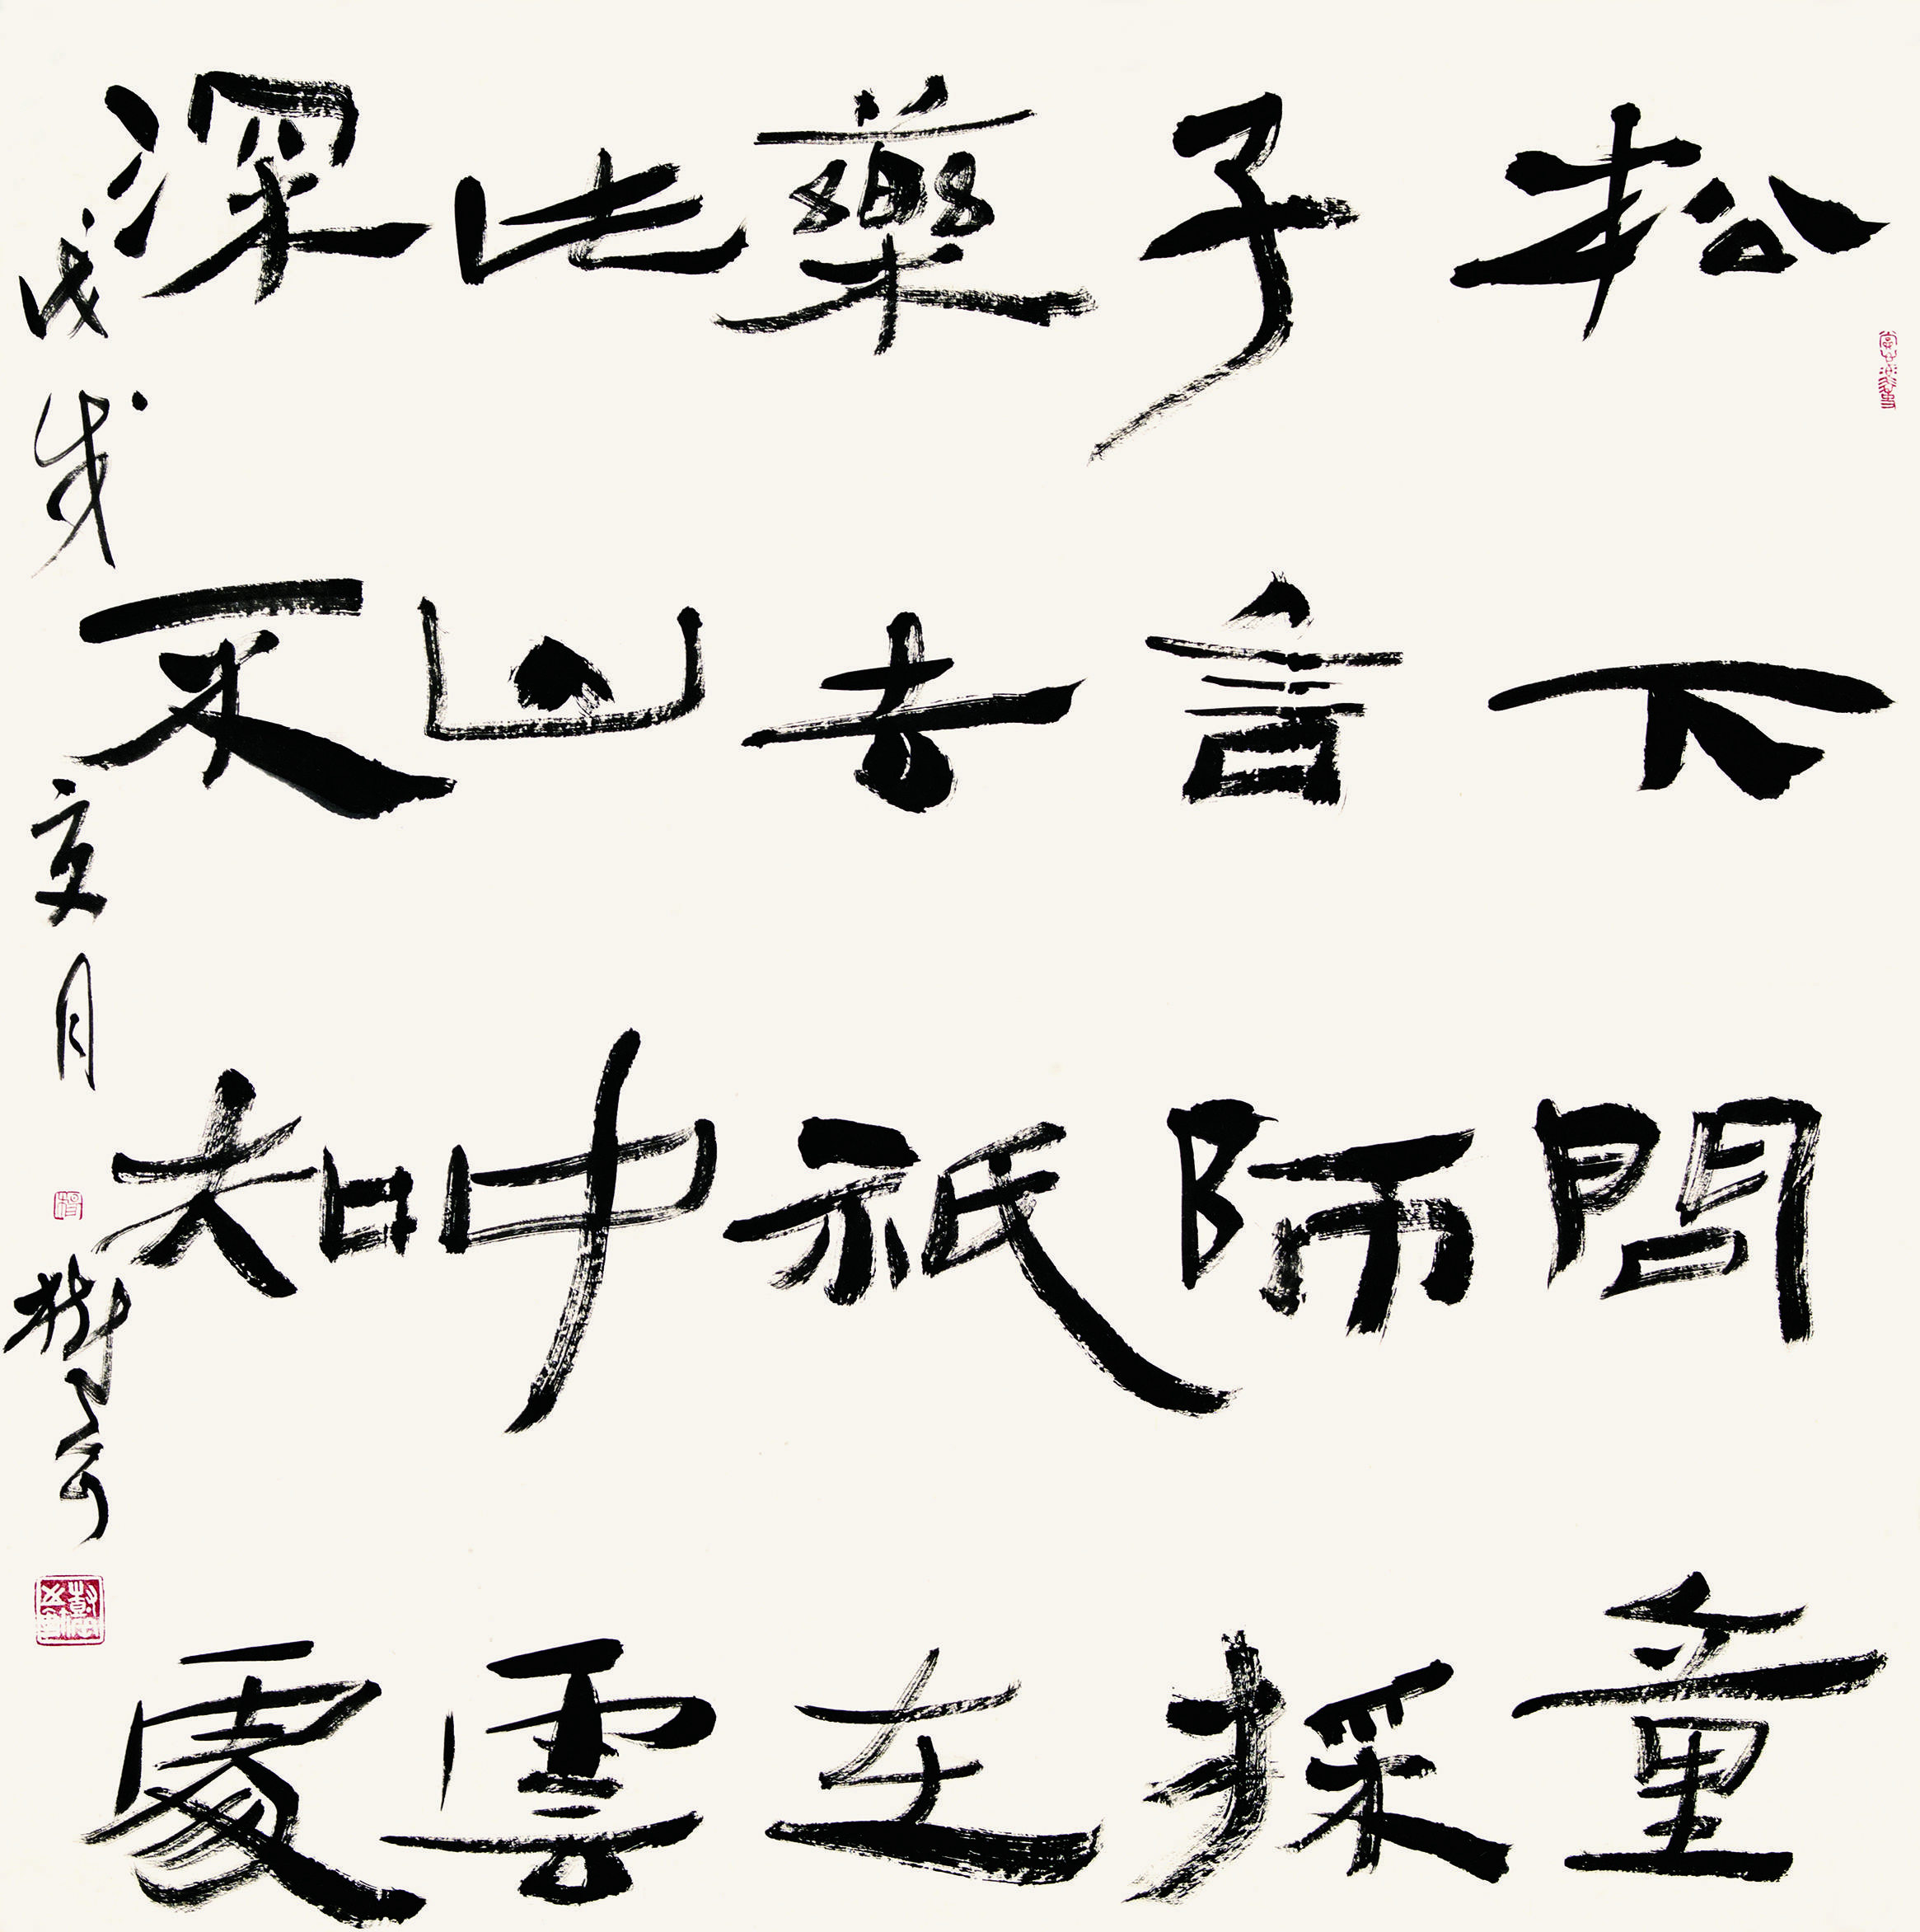 松下問童
子言師採
藥去祇在
此山中雲
深不知處
戊戌亥月樹